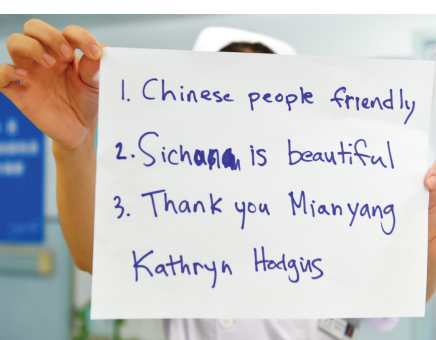 1. Chinese people friendly
2. Sichuan is beautiful
3. Thank you Mianyang
Kathryn Hodgus